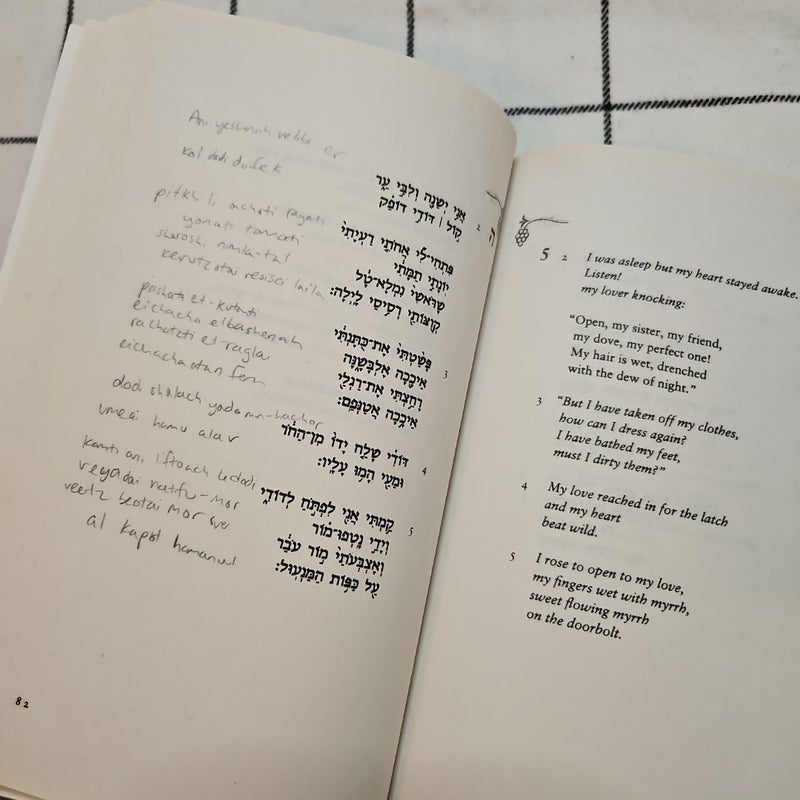 Ani yeshenah velibi er
Kol dodi dofek
pitkhi li achoti rayati
yonati tamati
sheroshi nimla-tal
kevutzotai resisei laila
pashati et-kutanti
eichacha elbashenah
rachatzti et-raglai
eichacha otan fem
dodi shalach yado min-hachor
umeai hamu alav
kamti ani liftoach ledodi
veyadai natfu-mor
al kapot hamanul
ה
2 אֲנִי יְשֵׁנָה וְלִבִּי עֵר
קוֹל ׀ דּוֹדִי דוֹפֵק
פִּתְחִי־לִי אֲחֹתִי רַעְיָתִי
יוֹנָתִי תַמָּתִי
שֶׁרֹּאשִׁי נִמְלָא־טָל
קְוֻצּוֹתַי רְסִיסֵי לָיְלָה׃
3 פָּשַׁטְתִּי אֶת־כֻּתָּנְתִּי
אֵיכָכָה אֶלְבָּשֶׁנָּה
רָחַצְתִּי אֶת־רַגְלַי
אֵיכָכָה אֲטַנְּפֵם׃
4 דּוֹדִי שָׁלַח יָדוֹ מִן־הַחֹר
וּמֵעַי הָמוּ עָלָיו׃
5 קַמְתִּי אֲנִי לִפְתֹּחַ לְדוֹדִי
וְיָדַי נָטְפוּ־מוֹר
וְאֶצְבְּעֹתַי מוֹר עֹבֵר
עַל כַּפּוֹת הַמַּנְעוּל׃
82
5 2 I was asleep but my heart stayed awake.
Listen!
my lover knocking:
"Open, my sister, my friend,
my dove, my perfect one!
My hair is wet, drenched
with the dew of night."
3 "But I have taken off my clothes,
how can I dress again?
I have bathed my feet,
must I dirty them?"
4 My love reached in for the latch
and my heart
beat wild.
5 I rose to open to my love,
my fingers wet with myrrh,
sweet flowing myrrh
on the doorbolt.